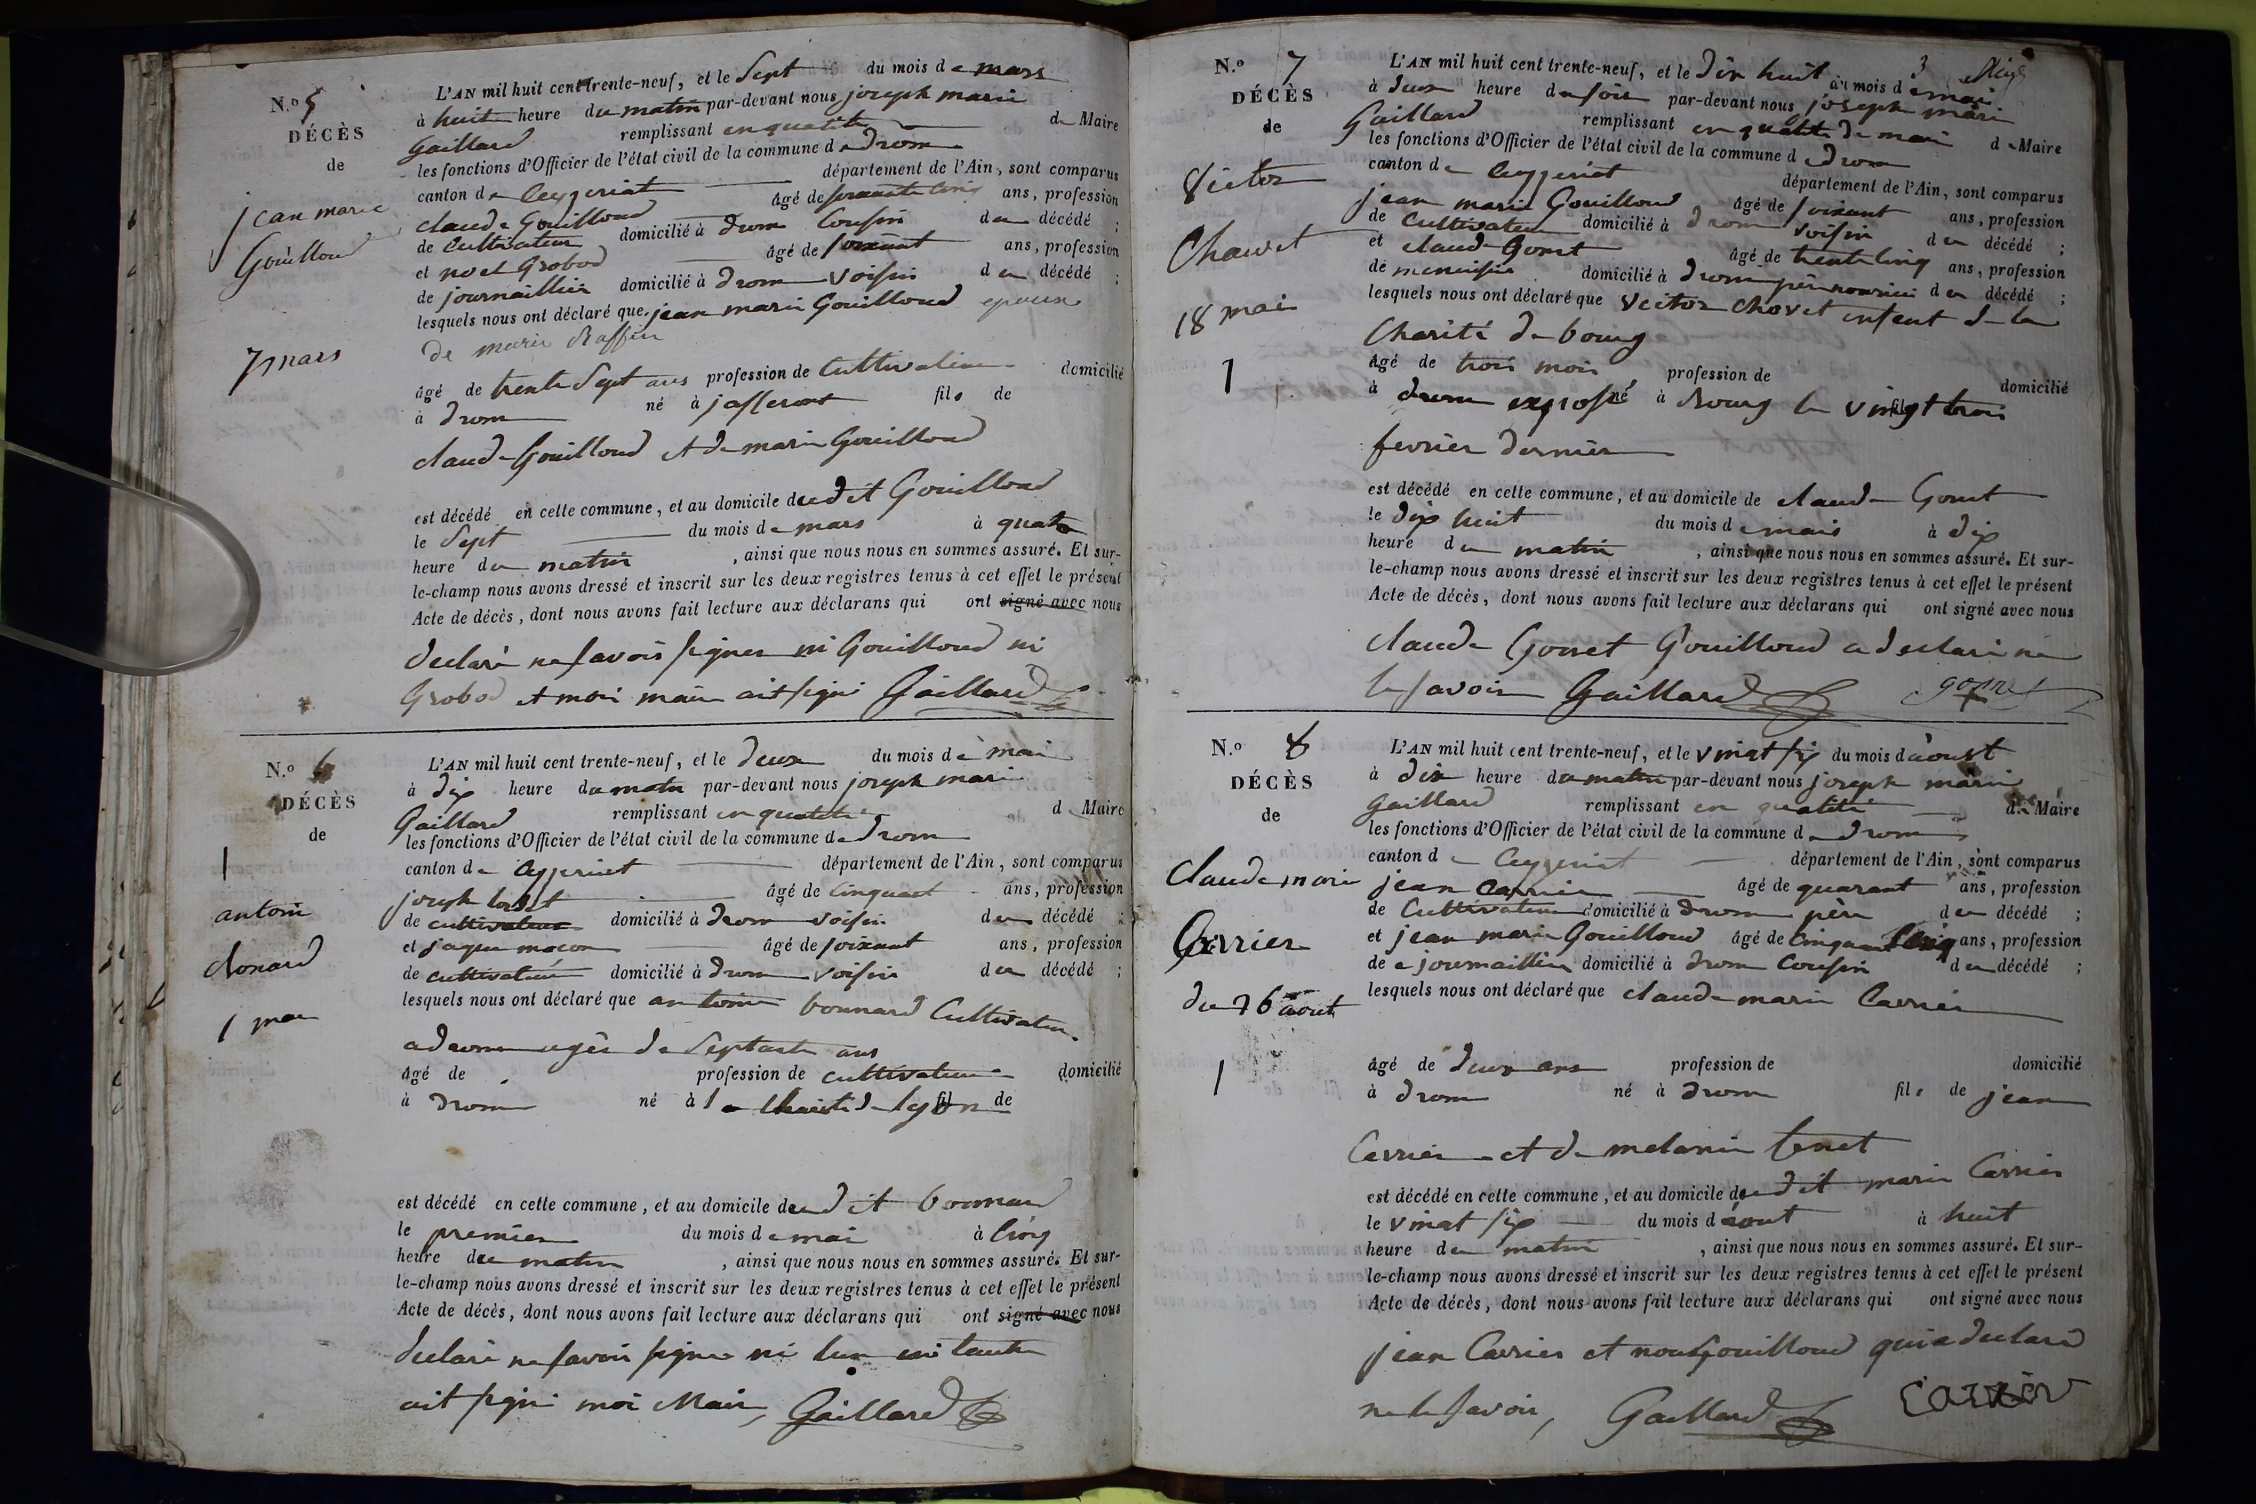 N.º 5
DÉCÈS
de
jean marie
Gouilloud
7 mars
L'AN mil huit cent trente-neuf, et le Sept du mois de mars
à huit heure du matin par-devant nous joseph marie
Gaillard remplissant en qualité de Maire
les fonctions d'Officier de l'état civil de la commune de drom
canton de Ceyzeriat département de l'Ain, sont comparus
claude Gouilloud âgé de soixante cinq ans, profession
de Cultivateur domicilié à drom Cousin du décédé ;
et noel Grobod âgé de soixant ans, profession
de journaillier domicilié à drom voisin du décédé ;
lesquels nous ont déclaré que jean marie Gouilloud epoux
de marie Raffin
âgé de trente Sept ans profession de Cultivateur domicilié
à drom né à jasseront fils de
claude Gouilloud et de marie Gouilloud
est décédé en cette commune, et au domicile du dit Gouilloud
le Sept du mois de mars à quatre
heure du matin , ainsi que nous nous en sommes assuré. Et sur-
le-champ nous avons dressé et inscrit sur les deux registres tenus à cet effet le présent
Acte de décès, dont nous avons fait lecture aux déclarans qui ont signé avec nous
declaré ne savoir signer ni Gouilloud ni
Grobod et moi maire ait signé Gaillard
N.º 6
DÉCÈS
de
1
antoine
Bonard
1 mai
L'AN mil huit cent trente-neuf, et le deux du mois de mai
à dix heure du matin par-devant nous joseph marie
Gaillard remplissant en qualité de Maire
les fonctions d'Officier de l'état civil de la commune de drom
canton de Ceyzeriat département de l'Ain, sont comparus
joseph âgé de Cinquant ans, profession
de cultivateur domicilié à drom voisin du décédé ;
et jaque macon âgé de soixant ans, profession
de cultivateur domicilié à drom voisin du décédé ;
lesquels nous ont déclaré que antoine bonnard Cultivateur
a drom agée de Septante ans
âgé de profession de cultivateur domicilié
à drom né à la Charité de lyon fil de
est décédé en cette commune, et au domicile du dit bonnard
le premier du mois de mai à Cinq
heure du matin , ainsi que nous nous en sommes assuré. Et sur-
le-champ nous avons dressé et inscrit sur les deux registres tenus à cet effet le présent
Acte de décès, dont nous avons fait lecture aux déclarans qui ont signé avec nous
declaré ne savoir signer ni lun ni lautre
ait signé moi Maire, Gaillard
3
N.º 7
DÉCÈS
de
Victor
Chauvet
18 mai
1
L'AN mil huit cent trente-neuf, et le dix huit du mois de mai
à deux heure du soir par-devant nous joseph marie
Gaillard remplissant en qualité de maire de Maire
les fonctions d'Officier de l'état civil de la commune de drom
canton de Ceyzeriat département de l'Ain, sont comparus
jean marie Gouilloud âgé de soixant ans, profession
de Cultivateur domicilié à drom voisin du décédé ;
et claude Gonet âgé de trente cinq ans, profession
de menuisier domicilié à drom père nouricier du décédé ;
lesquels nous ont déclaré que Victor Chovet enfant de la
Charité de bourg
âgé de trois mois profession de domicilié
à drom exposé né à Bourg le vingt trois
fevrier dernier
est décédé en cette commune, et au domicile de claude Gonet
le dix huit du mois de mai à dix
heure du matin , ainsi que nous nous en sommes assuré. Et sur-
le-champ nous avons dressé et inscrit sur les deux registres tenus à cet effet le présent
Acte de décès, dont nous avons fait lecture aux déclarans qui ont signé avec nous
claude Gonet Gouilloud a declaré ne
le savoir Gaillard gonet
N.º 8
DÉCÈS
de
Claude marie
Carrier
du 26 aout
1
L'AN mil huit cent trente-neuf, et le vingt six du mois d'aoust
à dix heure du matin par-devant nous joseph marie
Gaillard remplissant en qualité de Maire
les fonctions d'Officier de l'état civil de la commune de drom
canton de Ceyzeriat département de l'Ain, sont comparus
jean Carrier âgé de quarant ans, profession
de Cultivateur domicilié à drom père du décédé ;
et jean marie Gouilloud âgé de Cinquant Cinq ans, profession
de journaillier domicilié à drom Cousin du décédé ;
lesquels nous ont déclaré que claude marie Carrier
âgé de deux ans profession de domicilié
à drom né à drom fils de jean
Carrier et de melanie tenet
est décédé en cette commune, et au domicile du dit marie Carrier
le vingt six du mois d'aout à huit
heure du matin , ainsi que nous nous en sommes assuré. Et sur-
le-champ nous avons dressé et inscrit sur les deux registres tenus à cet effet le présent
Acte de décès, dont nous avons fait lecture aux déclarans qui ont signé avec nous
jean Carrier et nous Gouilloud qui a declaré
ne le savoir, Gaillard Carrier